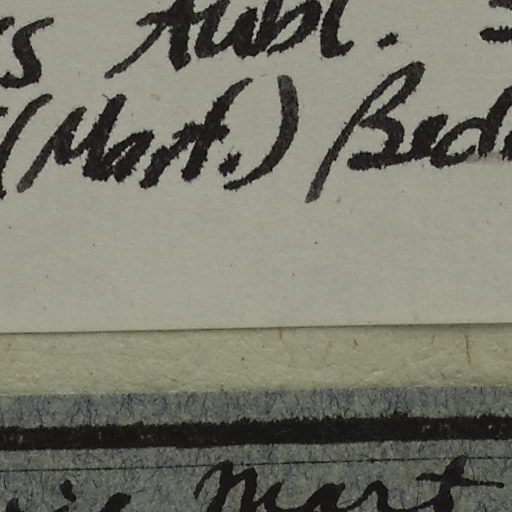 Aubl.
(Mart.) Bed
Mart